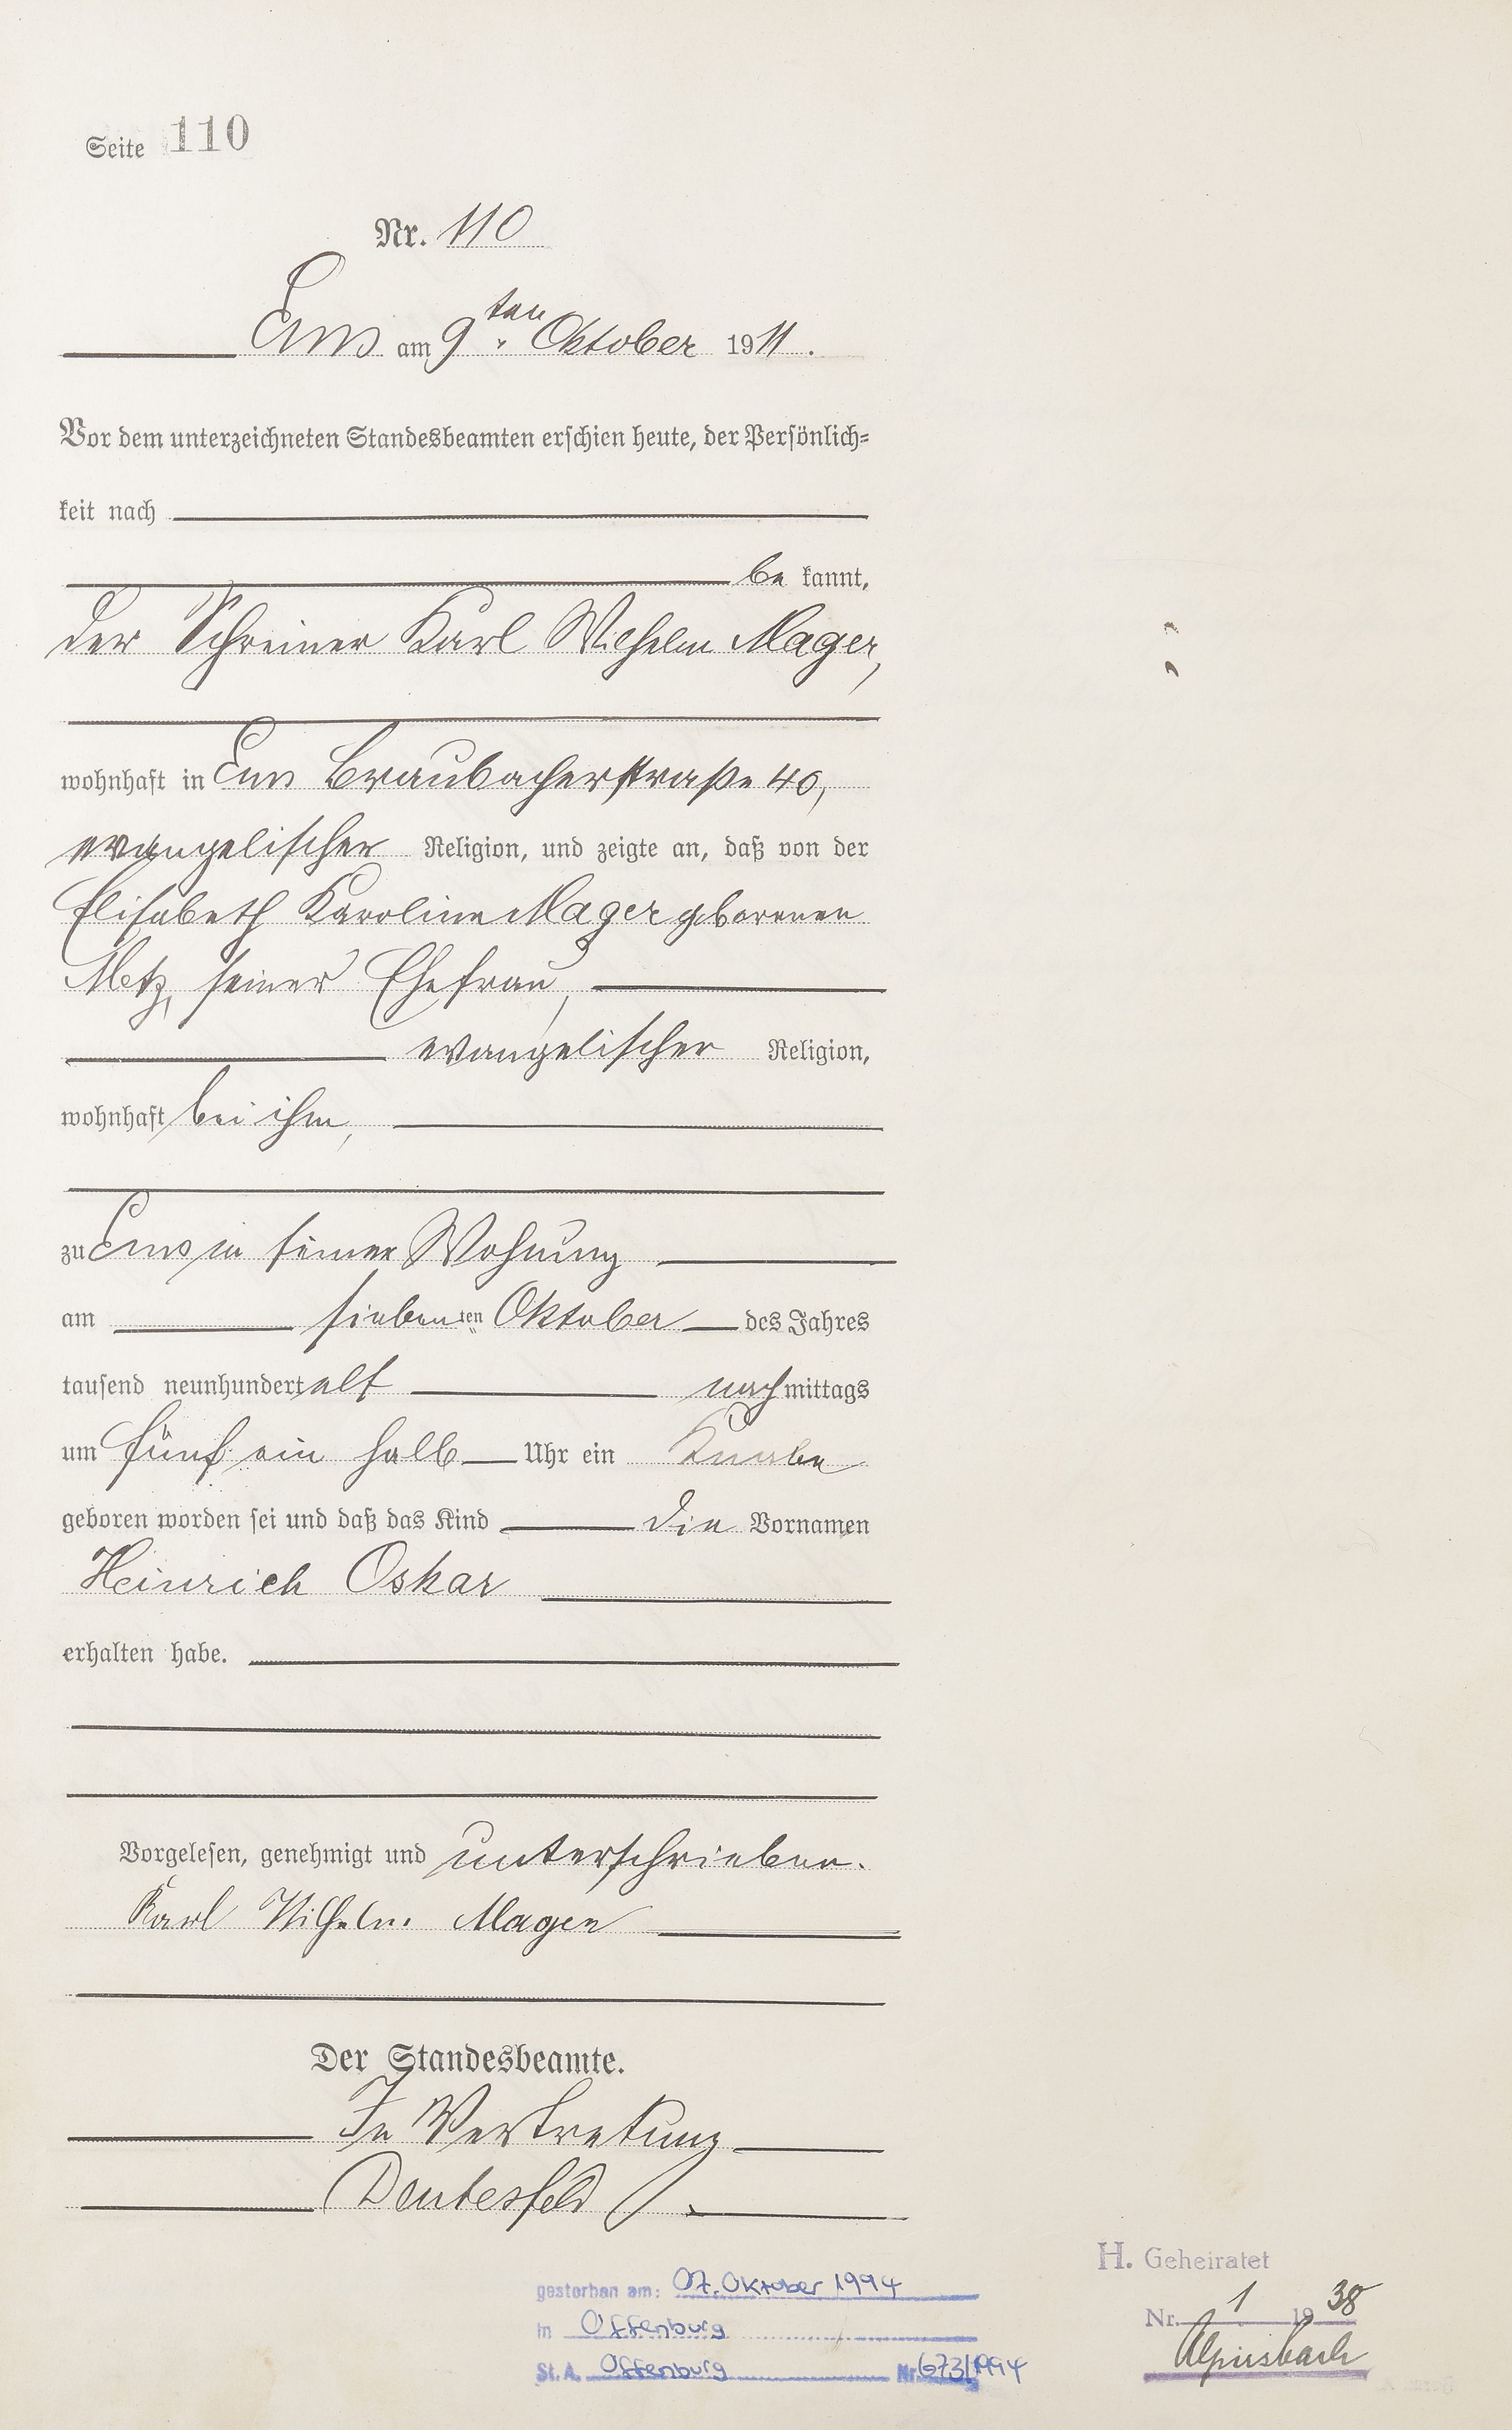 Seite 110
Nr. 110
Ems am 9ten Oktober 1911.
Vor dem unterzeichneten Standesbeamten erschien heute, der Persönlich=
keit nach
be kannt,
der Schreiner Karl Wilhelm Mager,
wohnhaft in Ems Braubacherstraße 40,
evangelischer Religion, und zeigte an, daß von der
Elisabeth Karoline Mager geborenen
Metz, seiner Ehefrau,
evangelischer Religion,
wohnhaft bei ihm,
zu Ems in seiner Wohnung
am siebenten Oktober des Jahres
tausend neunhundert elf nachmittags
um fünf ein halb Uhr ein Knabe
geboren worden sei und daß das Kind die Vornamen
Heinrich Oskar
erhalten habe.
Vorgelesen, genehmigt und unterschrieben.
Karl Wilhelm Mager
Der Standesbeamte.
In Vertretung
Deutesfeld
gestorben am: 07. Oktober 1994
in Offenburg
St. A. Offenburg Nr. 673/1994
H. Geheiratet
Nr. 1 1938
Alpirsbach